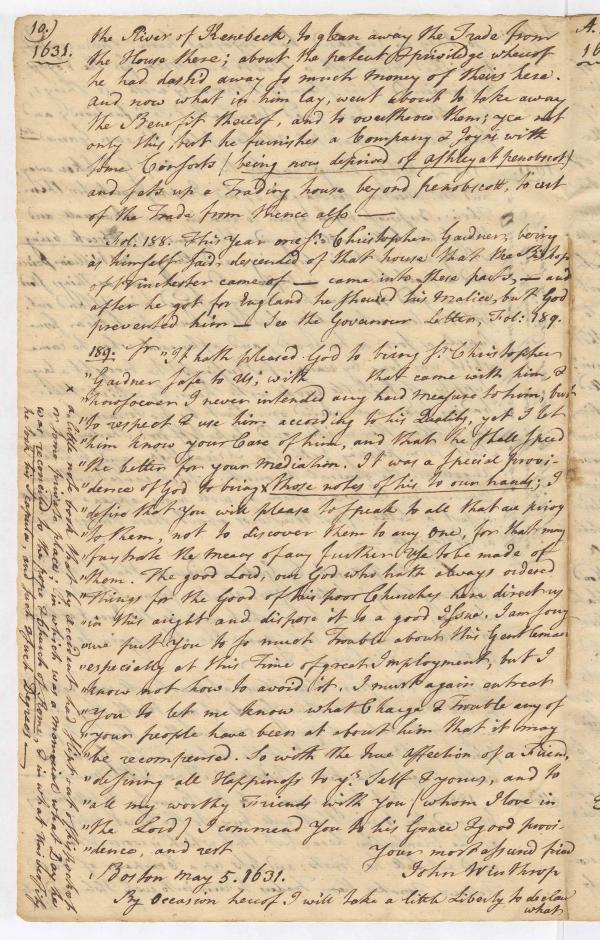 19.)
1631.
the River of Kenebeck, to glean away the Trade from
the House there; about the patent & priviledge whereof
he had dash'd away so much money of theirs here.
And now what in him lay, went about to take away
the Benefit thereof, and to overthrow them; yea not
only this, but he furnishes a Company & Joyns with
some Consorts (being now deprived of Ashley at penobscot)
and sets up a Trading house beyond penobscott, to cut
of the Trade from thence also —
Fol. 188. This year one Sr. Christopher Gardner, being
as himself said, descended of that house that the Bishop
of Winchester came of — came into these parts, — and
after he got for England he shewed his malice, but God
prevented him — See the Govenour Letter, Fol: 189.
189. Sr "It hath pleased God to bring Sr. Christopher
"Gardner safe to Us, with that came with him, &
"howsoever I never intended any hard measure to him, but
"to respect & use him according to his Quality, yet I let
"him know your Care of him, and that he shall speed
"the better for your mediation. It was a special provi-
"dence of God to bring x those notes of his to our hands; I
"desire that you will please to speak to all that are privy
"to them, not to discover them to any one, for that may
"frustrate the means of any further Use to be made of
"them. The good Lord, our God who hath always ordered
"things for the Good of his poor Churches here direct us
"in this aright and dispose it to a good Issue. I am sory
"we put You to so much Trouble about this Gentleman
"especially at this Time of great Imployment, but I
"know not how to avoid it. I must again entreat
"You to let me know what Charge & Trouble any of
"your people have been at about him that it may
"be recompensed. So with the true affection of a Friend,
"desiring all Happiness to yr. Self & yours, and to
"all my worthy Friends with You (whom I love in
"the Lord) I commend You to his Grace & good provi-
"dence, and rest Your most assured friend
"Boston May 5. 1631. John Winthrop
By Occasion hereof I will take a little Liberty to declare
what
x a little note book that by accident had slipt out of his pocket
or some private place; in which was a memorial what Day he
was reconciled to the pope & Church of Rome, & in what University
he took his Scapula, and such & such Degrees —